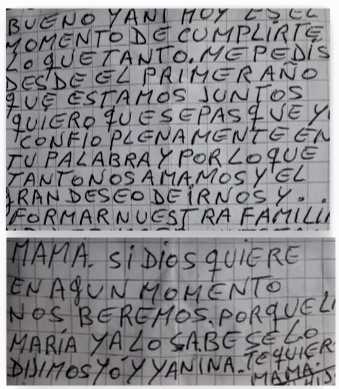 BUENO YANI HOY ES EL
MOMENTO DE CUMPLIRTE
LO QUE TANTO. ME PEDIS
DESDE EL PRIMER AÑO
QUE ESTAMOS JUNTOS
QUIERO QUE SEPAS QUE Y
CONFIO PLENAMENTE EN
TU PALABRA Y POR LO QUE
TANTO NOS AMAMOS Y EL
GRAN DESEO DE IRNOS Y..
FORMAR NUESTRA FAMILI
MAMA. Si DIOS QUIERE
EN AGUN MOMENTO
NOS BEREMOS. PORQUE LI
MARÍA YA LO SABE SE LO
DIJIMOS YO Y YANINA. TE QUIER
MAMA.